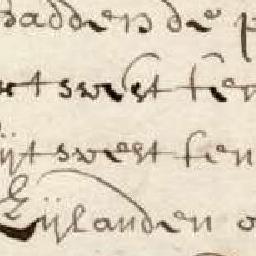 hadden de p
rt west ten
ijt west ten
Eijlanden o